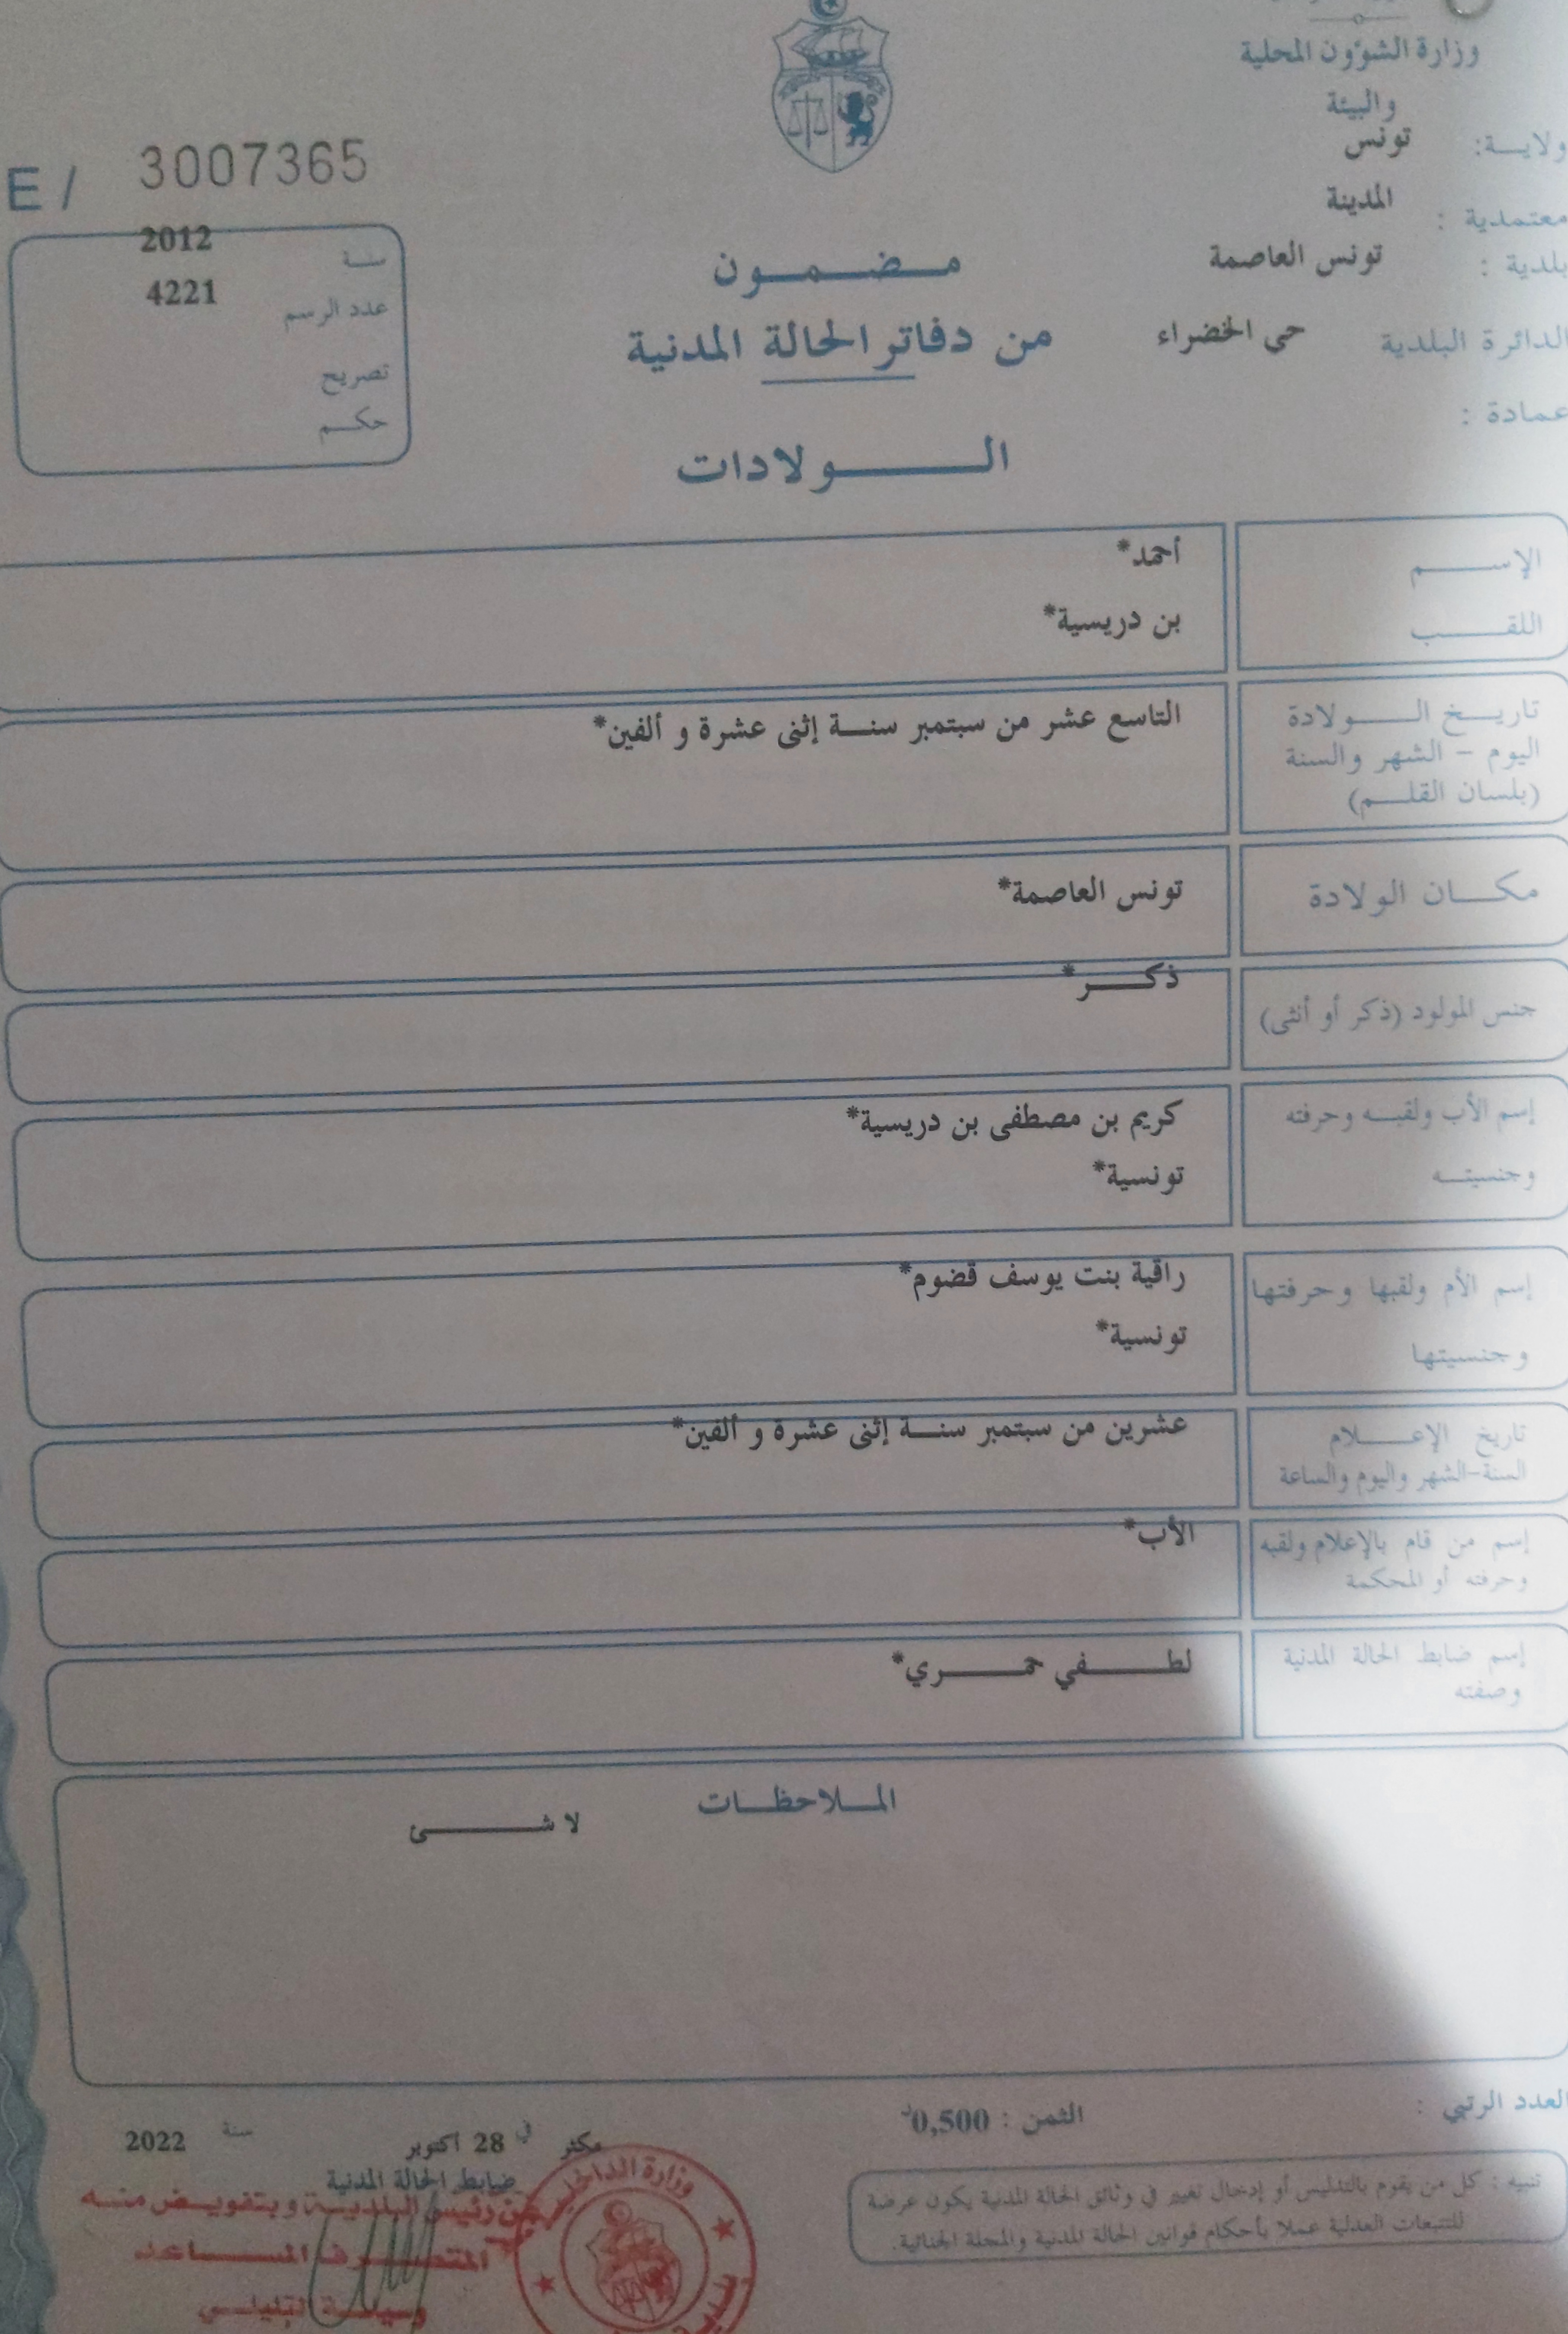 وزارة الشؤون المحلية
والبيئة
ولايـــة: تونس
معتمدية : المدينة
بلدية : تونس العاصمة
الدائرة البلدية حي الخضراء
عمادة :
E / 3007365
سنـة 2012
عدد الرسم 4221
تصريح
حكـم
مـضـمـون
من دفاتر الحالة المدنية
الـولادات
الإسـم أحمد*
اللقـب بن دريسية*
تاريـخ الـولادة التاسع عشر من سبتمبر سنـة إثنى عشرة و ألفين*
اليوم – الشهر والسنة
(بلسان القلـم)
مكـان الولادة تونس العاصمة*
جنس المولود (ذكر أو أنثى) ذكـر*
إسم الأب ولقبـه وحرفته كريم بن مصطفى بن دريسية*
وجنسيتـه تونسية*
إسم الأم ولقبها وحرفتها راقية بنت يوسف قضوم*
وجنسيتها تونسية*
تاريخ الإعـلام عشرين من سبتمبر سنـة إثنى عشرة و ألفين*
السنة-الشهر واليوم والساعة
إسم من قام بالإعلام ولقبه الأب*
وحرفته أو المحكمة
إسم ضابط الحالة المدنية لطـفي حمـري*
وصفته
المـلاحظـات
لا شـئ
العدد الرتبي :
الثمن : 0,500د
مكثر في 28 اكتوبر سنة 2022
ضابط الحالة المدنية
عن رئيس البلديـة وبتفويـض منـه
المتصـرف المسـاعد
وسيلـة التليلـي
وزارة الداخلية
تنبيه : كل من يقوم بالتدليس أو إدخال تغيير في وثائق الحالة المدنية يكون عرضة
للتتبعات العدلية عملا بأحكام قوانين الحالة المدنية والمجلة الجنائية.